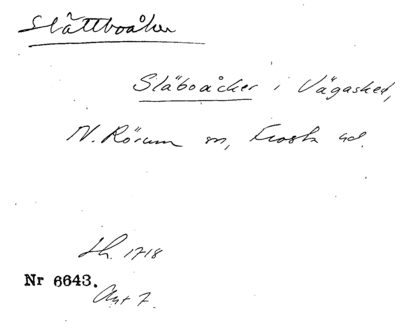 Slättboåker
Släboåcker i Vägasked,
N. Rörum sn, Frosta hd.
Lh. 1718
Nr 6643.
Akt 7.